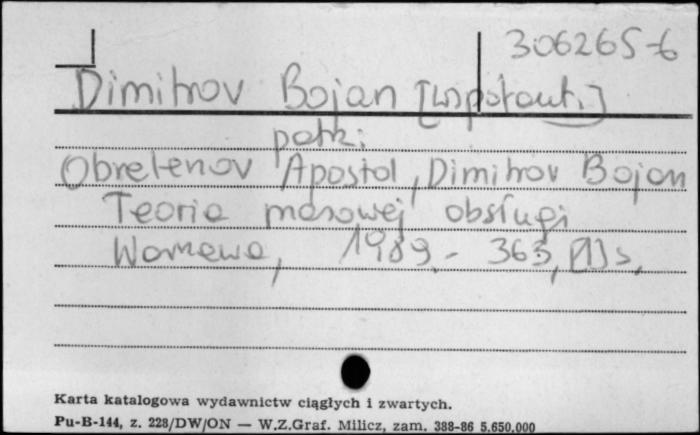 306265-6
Dimitrov Bojan [współaut.]
patrz:
Obretenov Apostol, Dimitrov Bojan
Teoria masowej obsługi
Warszawa, 1989. - 363, [1] s.
Karta katalogowa wydawnictw ciągłych i zwartych.
Pu-B-144, z. 228/DW/ON — W.Z.Graf. Milicz, zam. 388-86 5.650.000